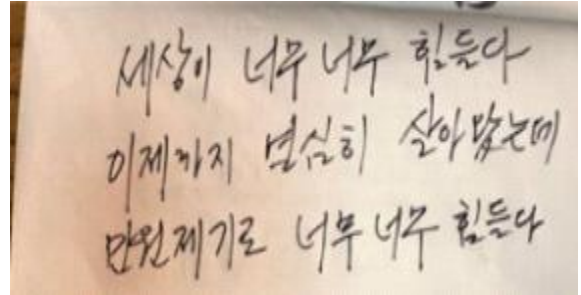 세상이 너무 너무 힘들다
이제까지 열심히 살아 왔는데
만원제기로 너무 너무 힘들다